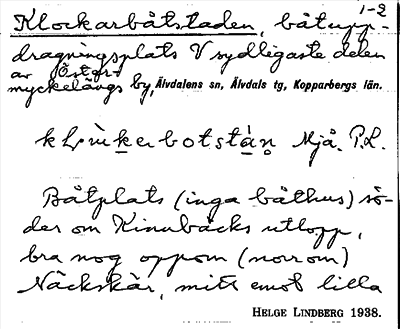 1-2
Klockarbåtstaden, båtupp-
dragningsplats V sydligaste delen
av Östermyckelängs by, Älvdalens sn, Älvdals tg, Kopparbergs län.
Mjå. P.L.
Båtplats (inga båthus) sö-
der om Kinnbäcks utlopp,
bra nog oppom (norrom)
Näckskär, mitt emot lilla
HELGE LINDBERG 1938.